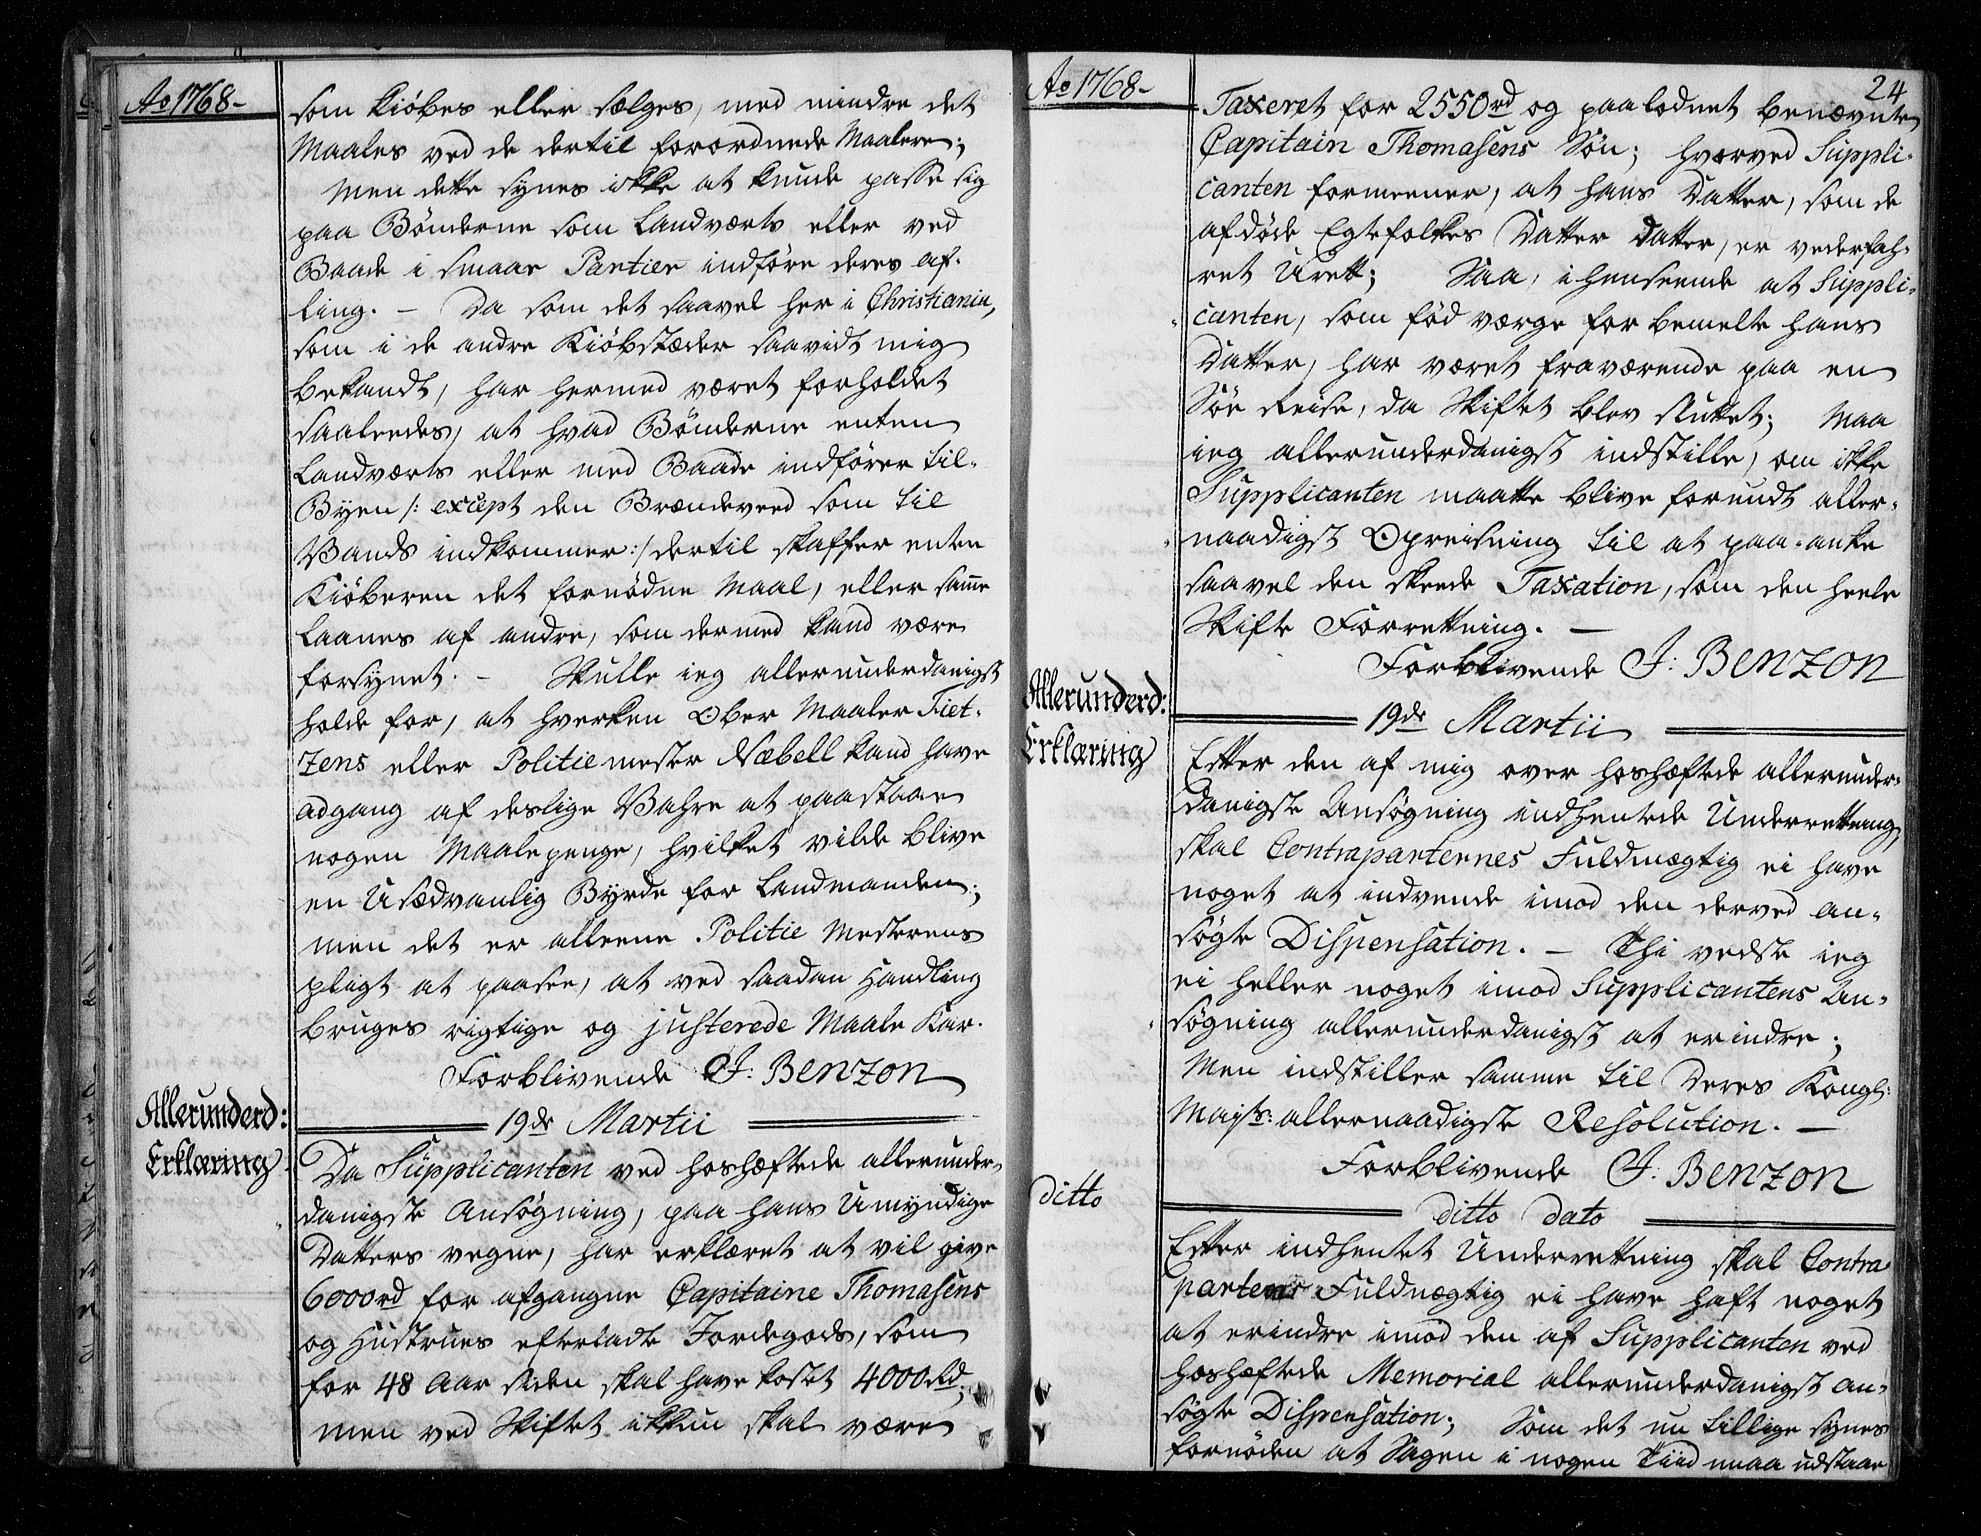 Ao 1768-
som kiöbes eller sælges, med mindre det
Maales ved de dertil forordnede Maalere;
Men dette synes ikke at kunde passe sig
paa Bönderne som Landværts eller ved
Baade i smaae Partier indföre deres af-
ling. - Da som det saavel her i Christiania,
som i de andre Kiöbstæder saavidt mig
bekandt, har hermed været forholdet
saaledes, at hvad Bönderne enten
Landværts eller med Baade indförer til
Byen /: except den Brændeveed som til
Vands indkommer :/ dertil skaffer enten
Kiöberen det fornödne Maal, eller samme
laanes af andre, som dermed kand være
forsynet. - Skulle ieg allerunderdanigst
holde for, at hverken Ober Maaler Tiet-
zens eller Politiemester Næbell kand have
adgang af deslige Vahre at paastaae
nogen Maalepenge, hvilket vilde blive
en Usædvanlig Byrde for Landmanden;
men det er alleene Politie Mesterens
pligt at paasee, at ved saadan Handling
bruges rigtige og justerede Maale Kar.
Forblivende J: Benzon
Allerunderd:
Erklæring
19de Martii
Da Supplicanten ved hoshæftede allerunder-
danigste Ansögning, paa hans Umyndige
Datters vegne, har erklæret at vil give
6000rd for afgangne Capitaine Thomasens
og Hustrues efterladte Jordegods, som
for 48 Aar siden skal have kostet 4000Rd;
men ved Skiftet ikkun skal være
Ao 1768-
24
Taxeret for 2550rd og paalodnet benævnte
Capitain Thomasens Sön; hvorved Suppli-
canten formeener, at hans Datter, som de
afdöde Egtefolkes Datter Datter, er vederfah-
ret Urett; Saa, i henseende at Suppli-
canten, som föd værge for bemelte hans
Datter, har været fraværende paa en
Söe Reise, da Skiftet blev sluttet; Maa
ieg allerunderdanigst indstille, om ikke
Supplicanten maatte blive forundt aller-
naadigst Opreisning til at paa-anke
saavel den skeede Taxation, som den heele
Skifte Forrettning. -
Forblivende J: Benzon
Allerunderd:
Erklæring
19de Martii
Efter den af mig over hoshæftede allerunder-
danigste Ansögning indhentede Underrettning,
skal Contraparternes Fuldmægtig ei have
noget at indvende imod den derved an-
sögte Dispensation. - Thi vedste ieg
ei heller noget imod Supplicantens An-
sögning allerunderdanigst at erindre;
Men indstiller samme til Deres Kongl:
Majts: allernaadigste Resolution. -
Forblivende J: Benzon
ditto
ditto dato
Efter indhentet Underrettning skal Contra
partens Fuldmægtig ei have haft noget
at erindre imod den af Supplicanten ved
hoshæftede Memorial allerunderdanigst an-
sögte Dispensation; Som det nu tillige synes
fornöden at Sagen i nogen Tiid maa udstaae